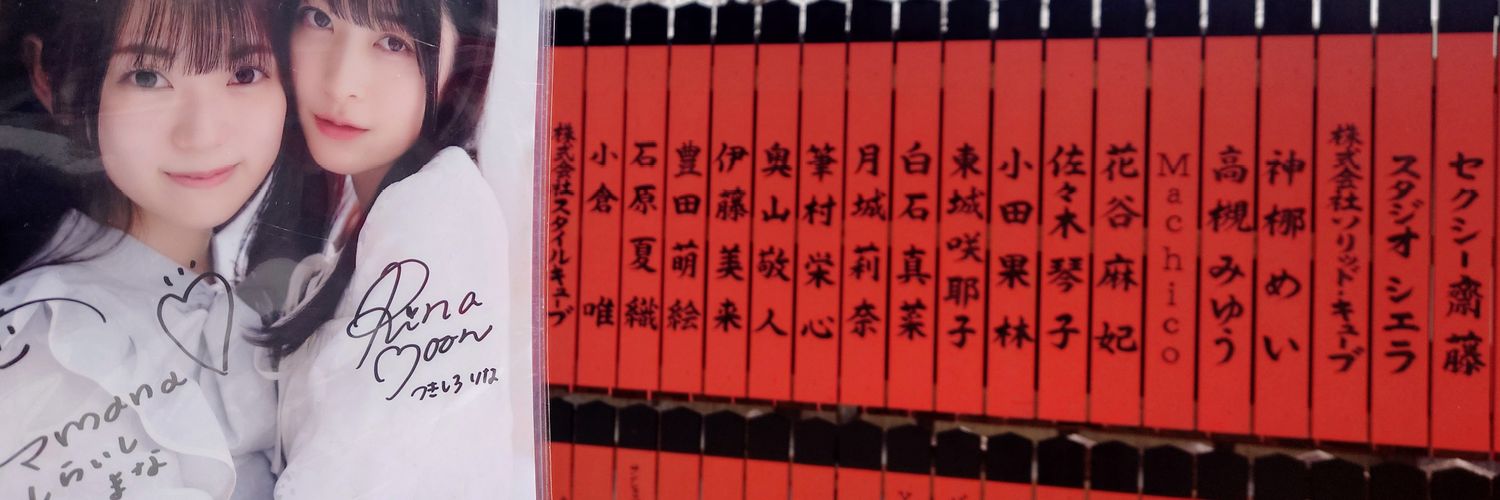 Rina
Moon
つきしろ りな
mana
しらいし
まな
株式会社スタイルキューブ
小倉唯
石原夏織
豊田萌絵
伊藤美来
奥山敬人
筆村栄心
月城莉奈
白石真菜
東城咲耶子
小田果林
佐々木琴子
花谷麻妃
Machico
高槻みゆう
神梛めい
株式会社ソリッド・キューブ
スタジオ シエラ
セクシー齋藤